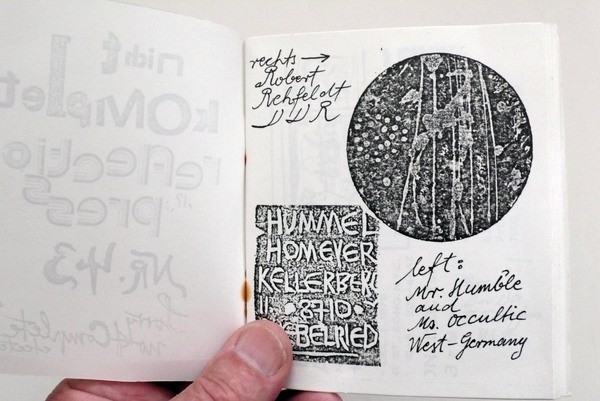 nicht
komplet
reflectio
press
NR. 43
Sorry
not Complete
rechts →
Robert
Rehfeldt
DDR
HUMMEL
HOMEYER
KELLERBERG
BELRIED
left:
Mr. Humble
and
Ms. Occultic
West-Germany